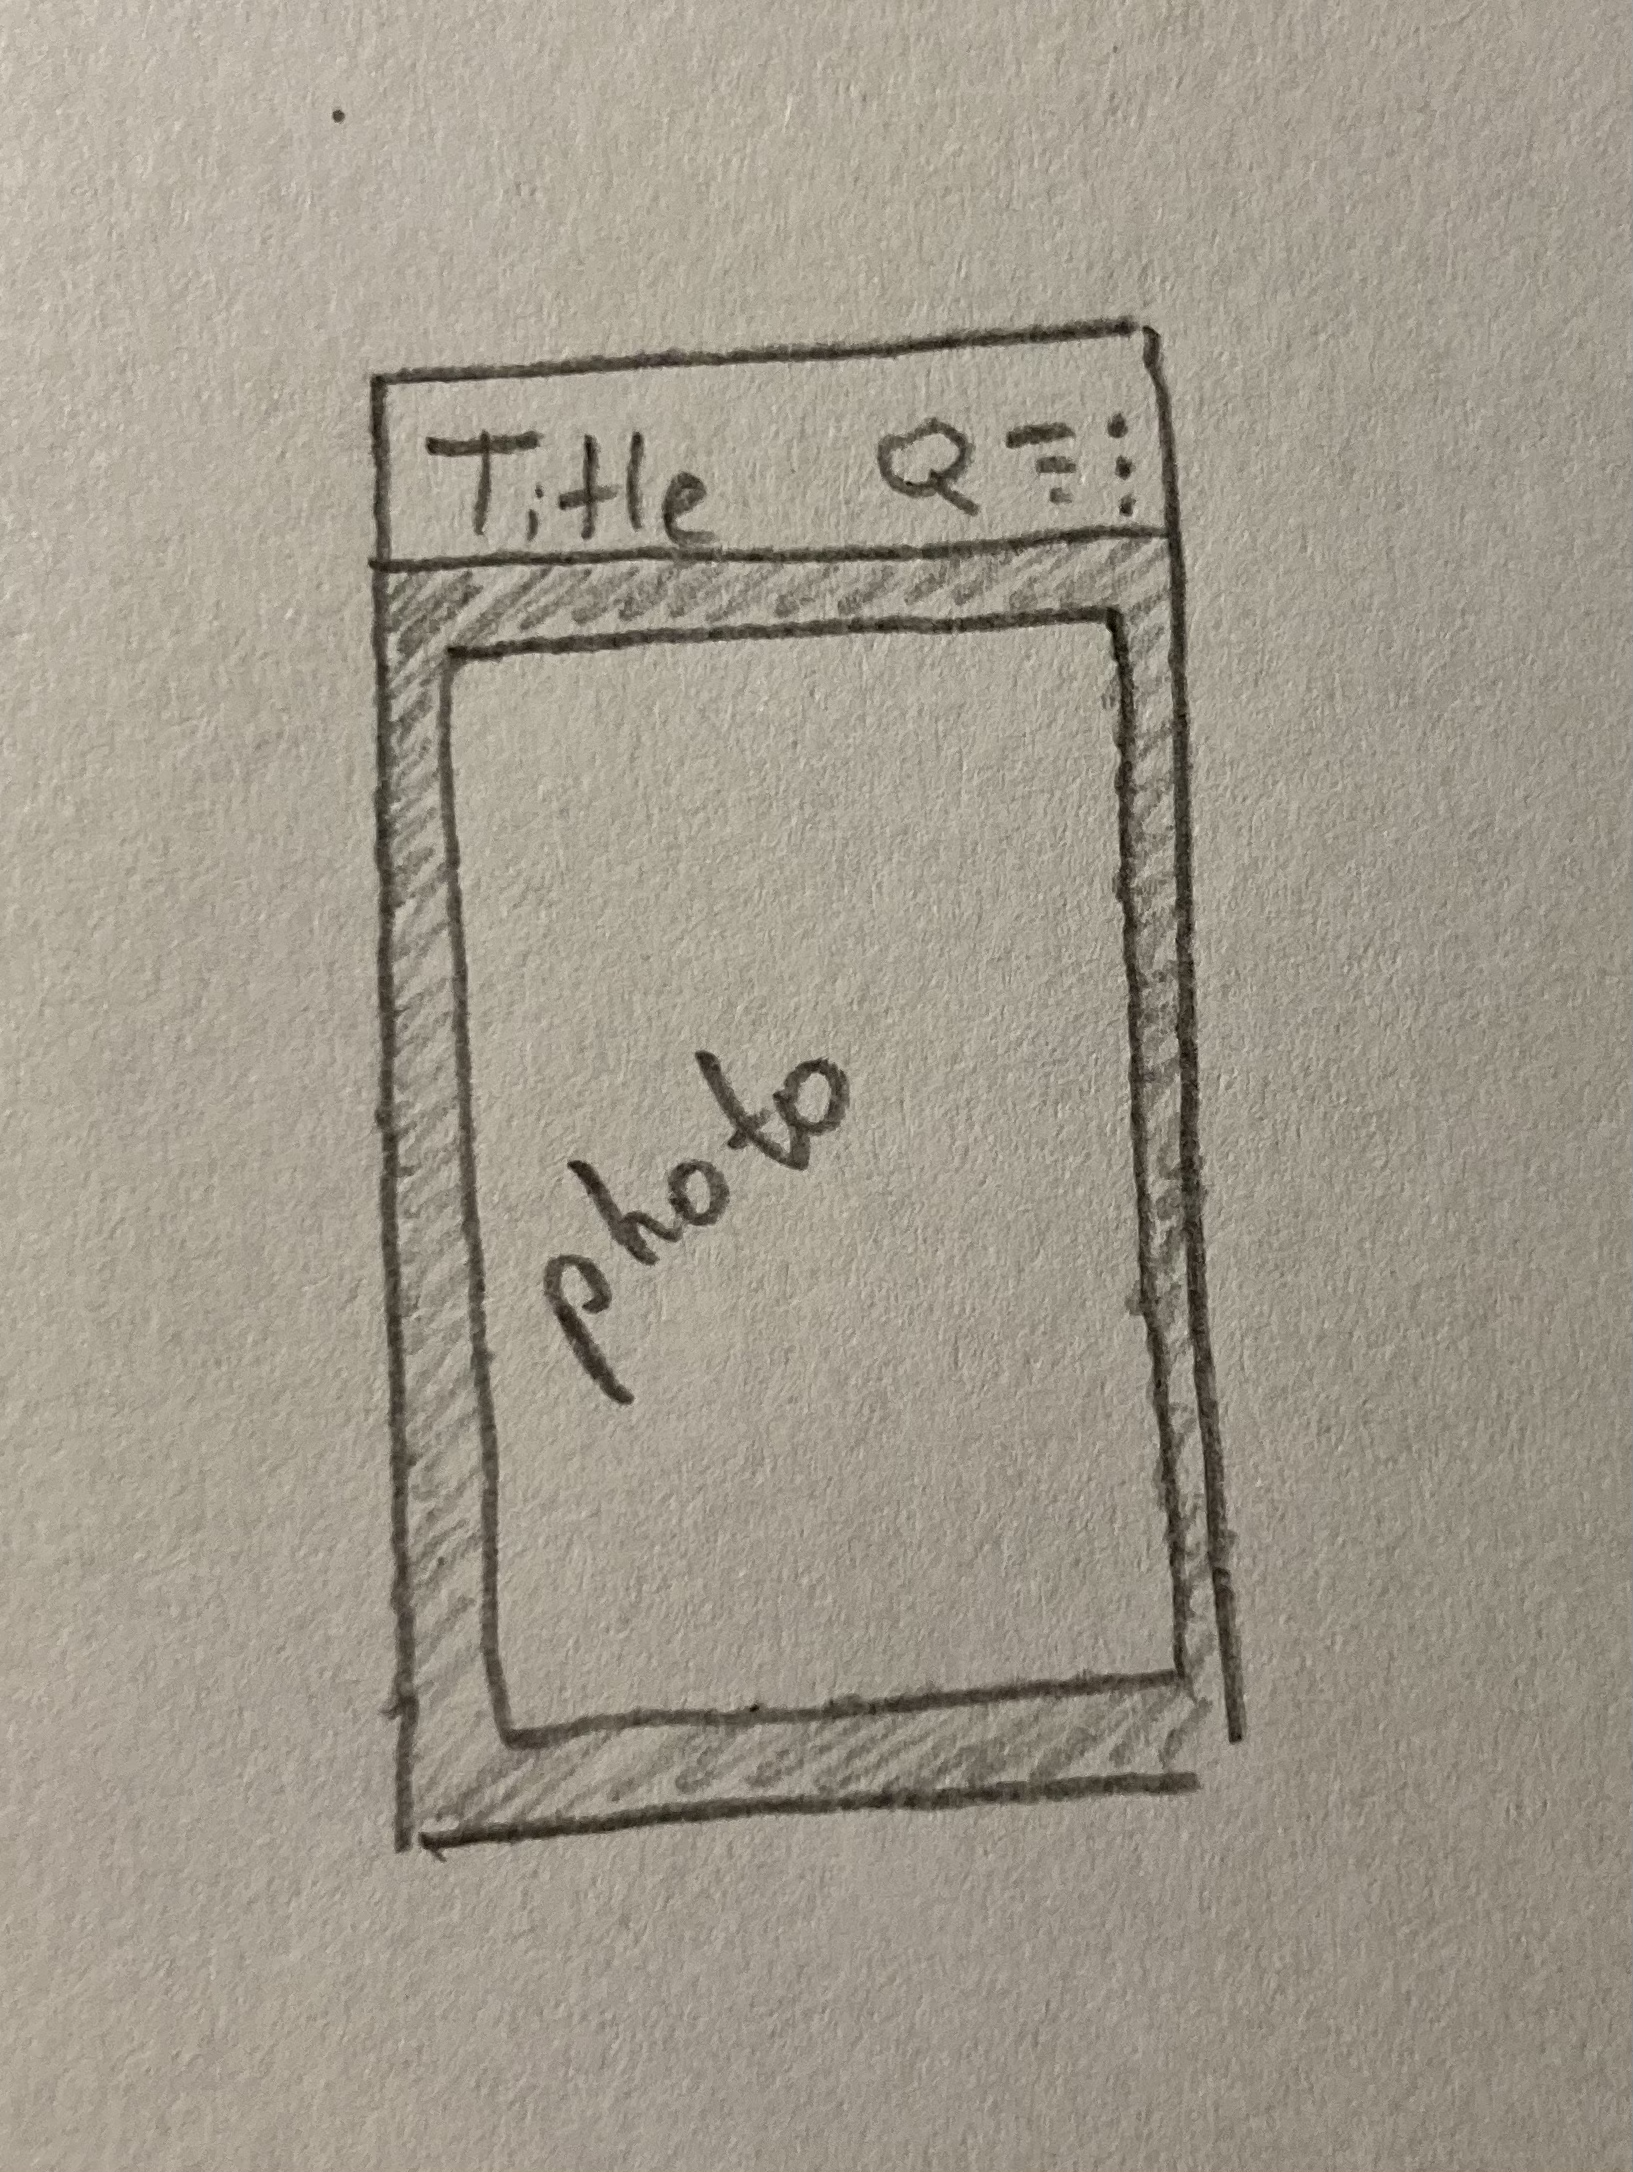 Title
photo